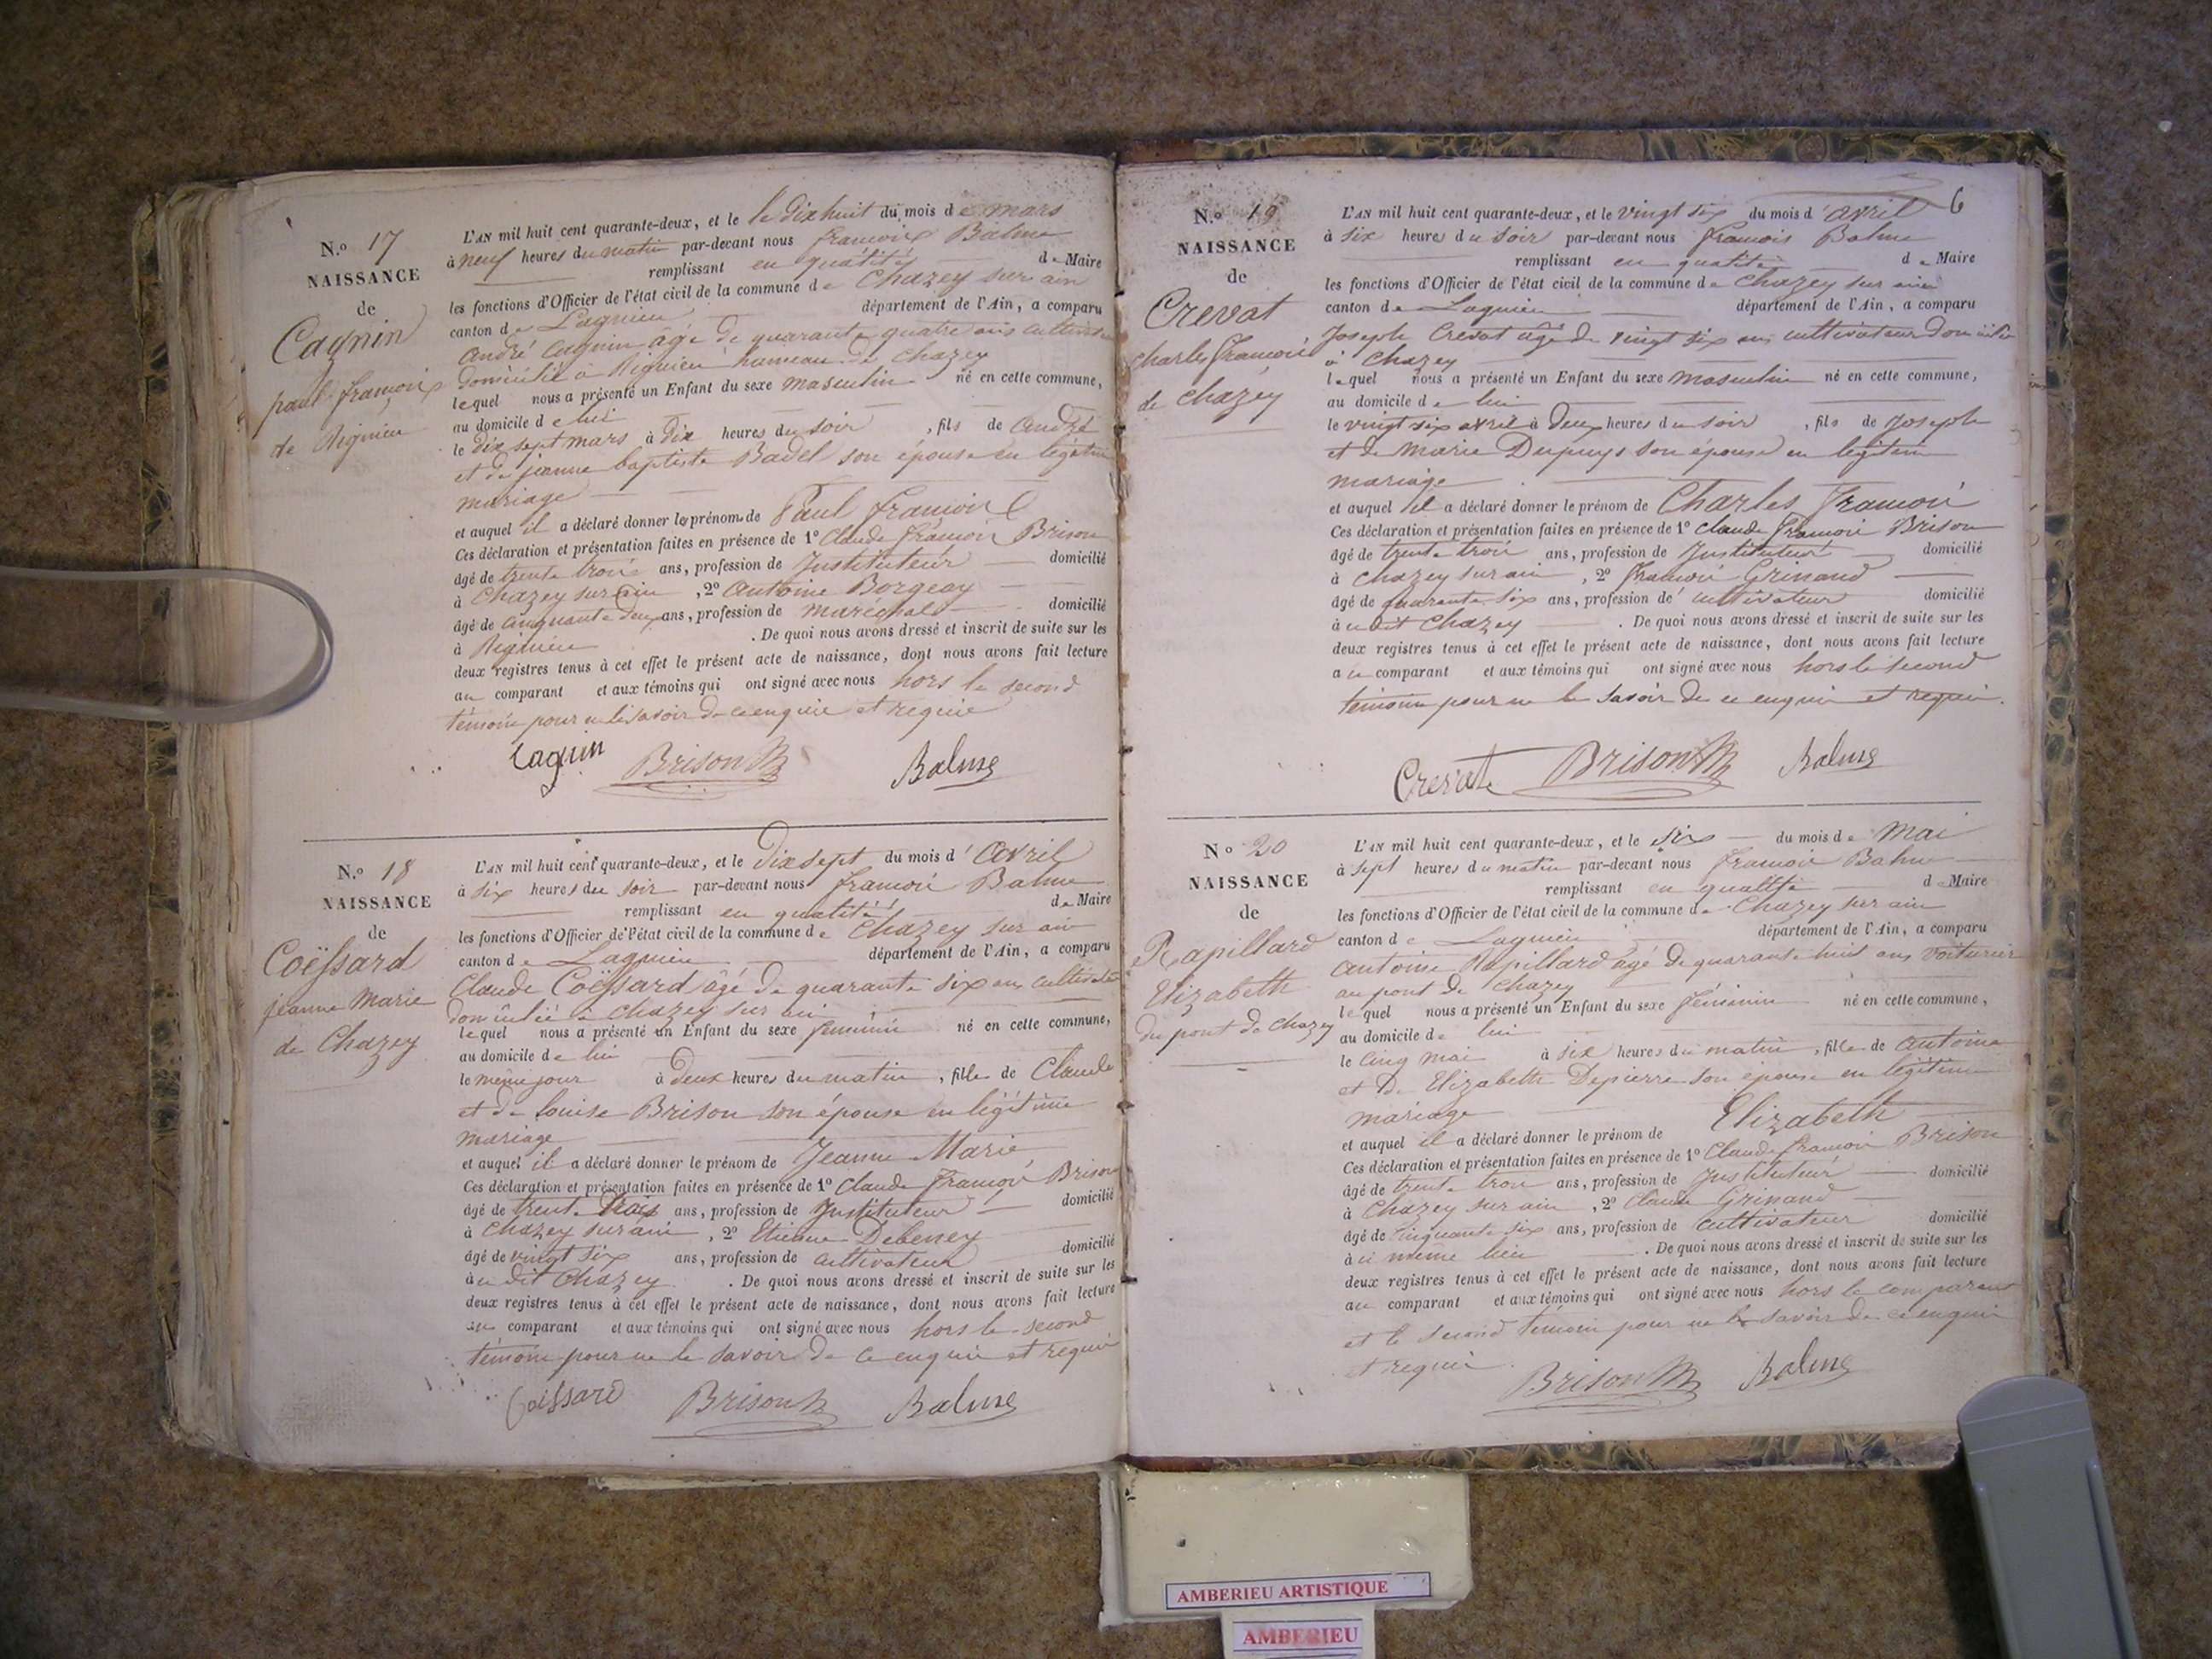 N.º 17
NAISSANCE
de
Cagnin
paul françois
de Rignieu
L'AN mil huit cent quarante-deux, et le le dix huit du mois de mars
à neuf heures du matin par-devant nous françois Balme
remplissant en qualité de Maire
les fonctions d'Officier de l'état civil de la commune de Chazey sur ain
canton de Lagnieu département de l'Ain, a comparu
andré Cagnin âgé de quarante quatre ans cultivateur
domicilié à Rignieu hameau de Chazey
lequel nous a présenté un Enfant du sexe masculin né en cette commune,
au domicile de lui
le dix sept mars à dix heures du soir, fils de andré
et de jeanne baptiste Badel son épouse en légitime
mariage
et auquel il a déclaré donner le prénom de Paul françois
Ces déclaration et présentation faites en présence de 1º Claude françois Brison
âgé de trente trois ans, profession de Instituteur domicilié
à Chazey sur ain, 2º Antoine Borgeay
âgé de cinquante deux ans, profession de maréchal domicilié
à Rignieu. De quoi nous avons dressé et inscrit de suite sur les
deux registres tenus à cet effet le présent acte de naissance, dont nous avons fait lecture
au comparant et aux témoins qui ont signé avec nous hors le second
témoin pour ne le savoir de ce enquis et requis
Cagnin Brison Balme
N.º 18
NAISSANCE
de
Coëssard
jeanne Marie
de Chazey
L'AN mil huit cent quarante-deux, et le dix sept du mois d'avril
à six heures du soir par-devant nous françois Balme
remplissant en qualité de Maire
les fonctions d'Officier de l'état civil de la commune de Chazey sur ain
canton de Lagnieu département de l'Ain, a comparu
Claude Coëssard âgé de quarante six ans cultivateur
domicilié à Chazey sur ain
lequel nous a présenté un Enfant du sexe feminin né en cette commune,
au domicile de lui
le même jour à deux heures du matin, fille de Claude
et de louise Brison son épouse en légitime
mariage
et auquel il a déclaré donner le prénom de Jeanne Marie
Ces déclaration et présentation faites en présence de 1º Claude françois Brison
âgé de trente trois ans, profession de Instituteur domicilié
à Chazey sur ain, 2º Etienne Debeney
âgé de vingt six ans, profession de cultivateur domicilié
à u dit Chazey. De quoi nous avons dressé et inscrit de suite sur les
deux registres tenus à cet effet le présent acte de naissance, dont nous avons fait lecture
au comparant et aux témoins qui ont signé avec nous hors le second
témoin pour ne le savoir de ce enquis et requis
Coëssard Brison Balme
6
N.º 19
NAISSANCE
de
Crevat
charles françois
de Chazey
L'AN mil huit cent quarante-deux, et le vingt six du mois d'avril
à six heures du soir par-devant nous françois Balme
remplissant en qualité de Maire
les fonctions d'Officier de l'état civil de la commune de Chazey sur ain
canton de Lagnieu département de l'Ain, a comparu
Joseph Crevat âgé de vingt six ans cultivateur domicilié
à Chazey
lequel nous a présenté un Enfant du sexe masculin né en cette commune,
au domicile de lui
le vingt six avril à deux heures du soir, fils de Joseph
et de Marie Dupuys son épouse en légitime
mariage
et auquel il a déclaré donner le prénom de Charles françois
Ces déclaration et présentation faites en présence de 1º Claude françois Brison
âgé de trente trois ans, profession de Instituteur domicilié
à Chazey sur ain, 2º françois Grinand
âgé de quarante six ans, profession de cultivateur domicilié
à u dit Chazey. De quoi nous avons dressé et inscrit de suite sur les
deux registres tenus à cet effet le présent acte de naissance, dont nous avons fait lecture
au comparant et aux témoins qui ont signé avec nous hors le second
témoin pour ne le savoir de ce enquis et requis.
Crevat Brison Balme
Nº 20
NAISSANCE
de
Rapillard
Elizabeth
du pont de Chazey
L'AN mil huit cent quarante-deux, et le six du mois de Mai
à sept heures du matin par-devant nous françois Balme
remplissant en qualité de Maire
les fonctions d'Officier de l'état civil de la commune de Chazey sur ain
canton de Lagnieu département de l'Ain, a comparu
antoine Rapillard âgé de quarante huit ans voiturier
au pont de Chazey
lequel nous a présenté un Enfant du sexe féminin né en cette commune,
au domicile de lui
le cinq mai à six heures du matin, fille de antoine
et de Elizabeth Depierre son épouse en légitime
mariage
et auquel il a déclaré donner le prénom de Elizabeth
Ces déclaration et présentation faites en présence de 1º Claude françois Brison
âgé de trente trois ans, profession de Instituteur domicilié
à Chazey sur ain, 2º Claude Grinand
âgé de cinquante six ans, profession de cultivateur domicilié
à u même lieu. De quoi nous avons dressé et inscrit de suite sur les
deux registres tenus à cet effet le présent acte de naissance, dont nous avons fait lecture
au comparant et aux témoins qui ont signé avec nous hors le comparant
et le second témoin pour ne le savoir de ce enquis
et requis.
Brison Balme
AMBERIEU ARTISTIQUE
AMBERIEU